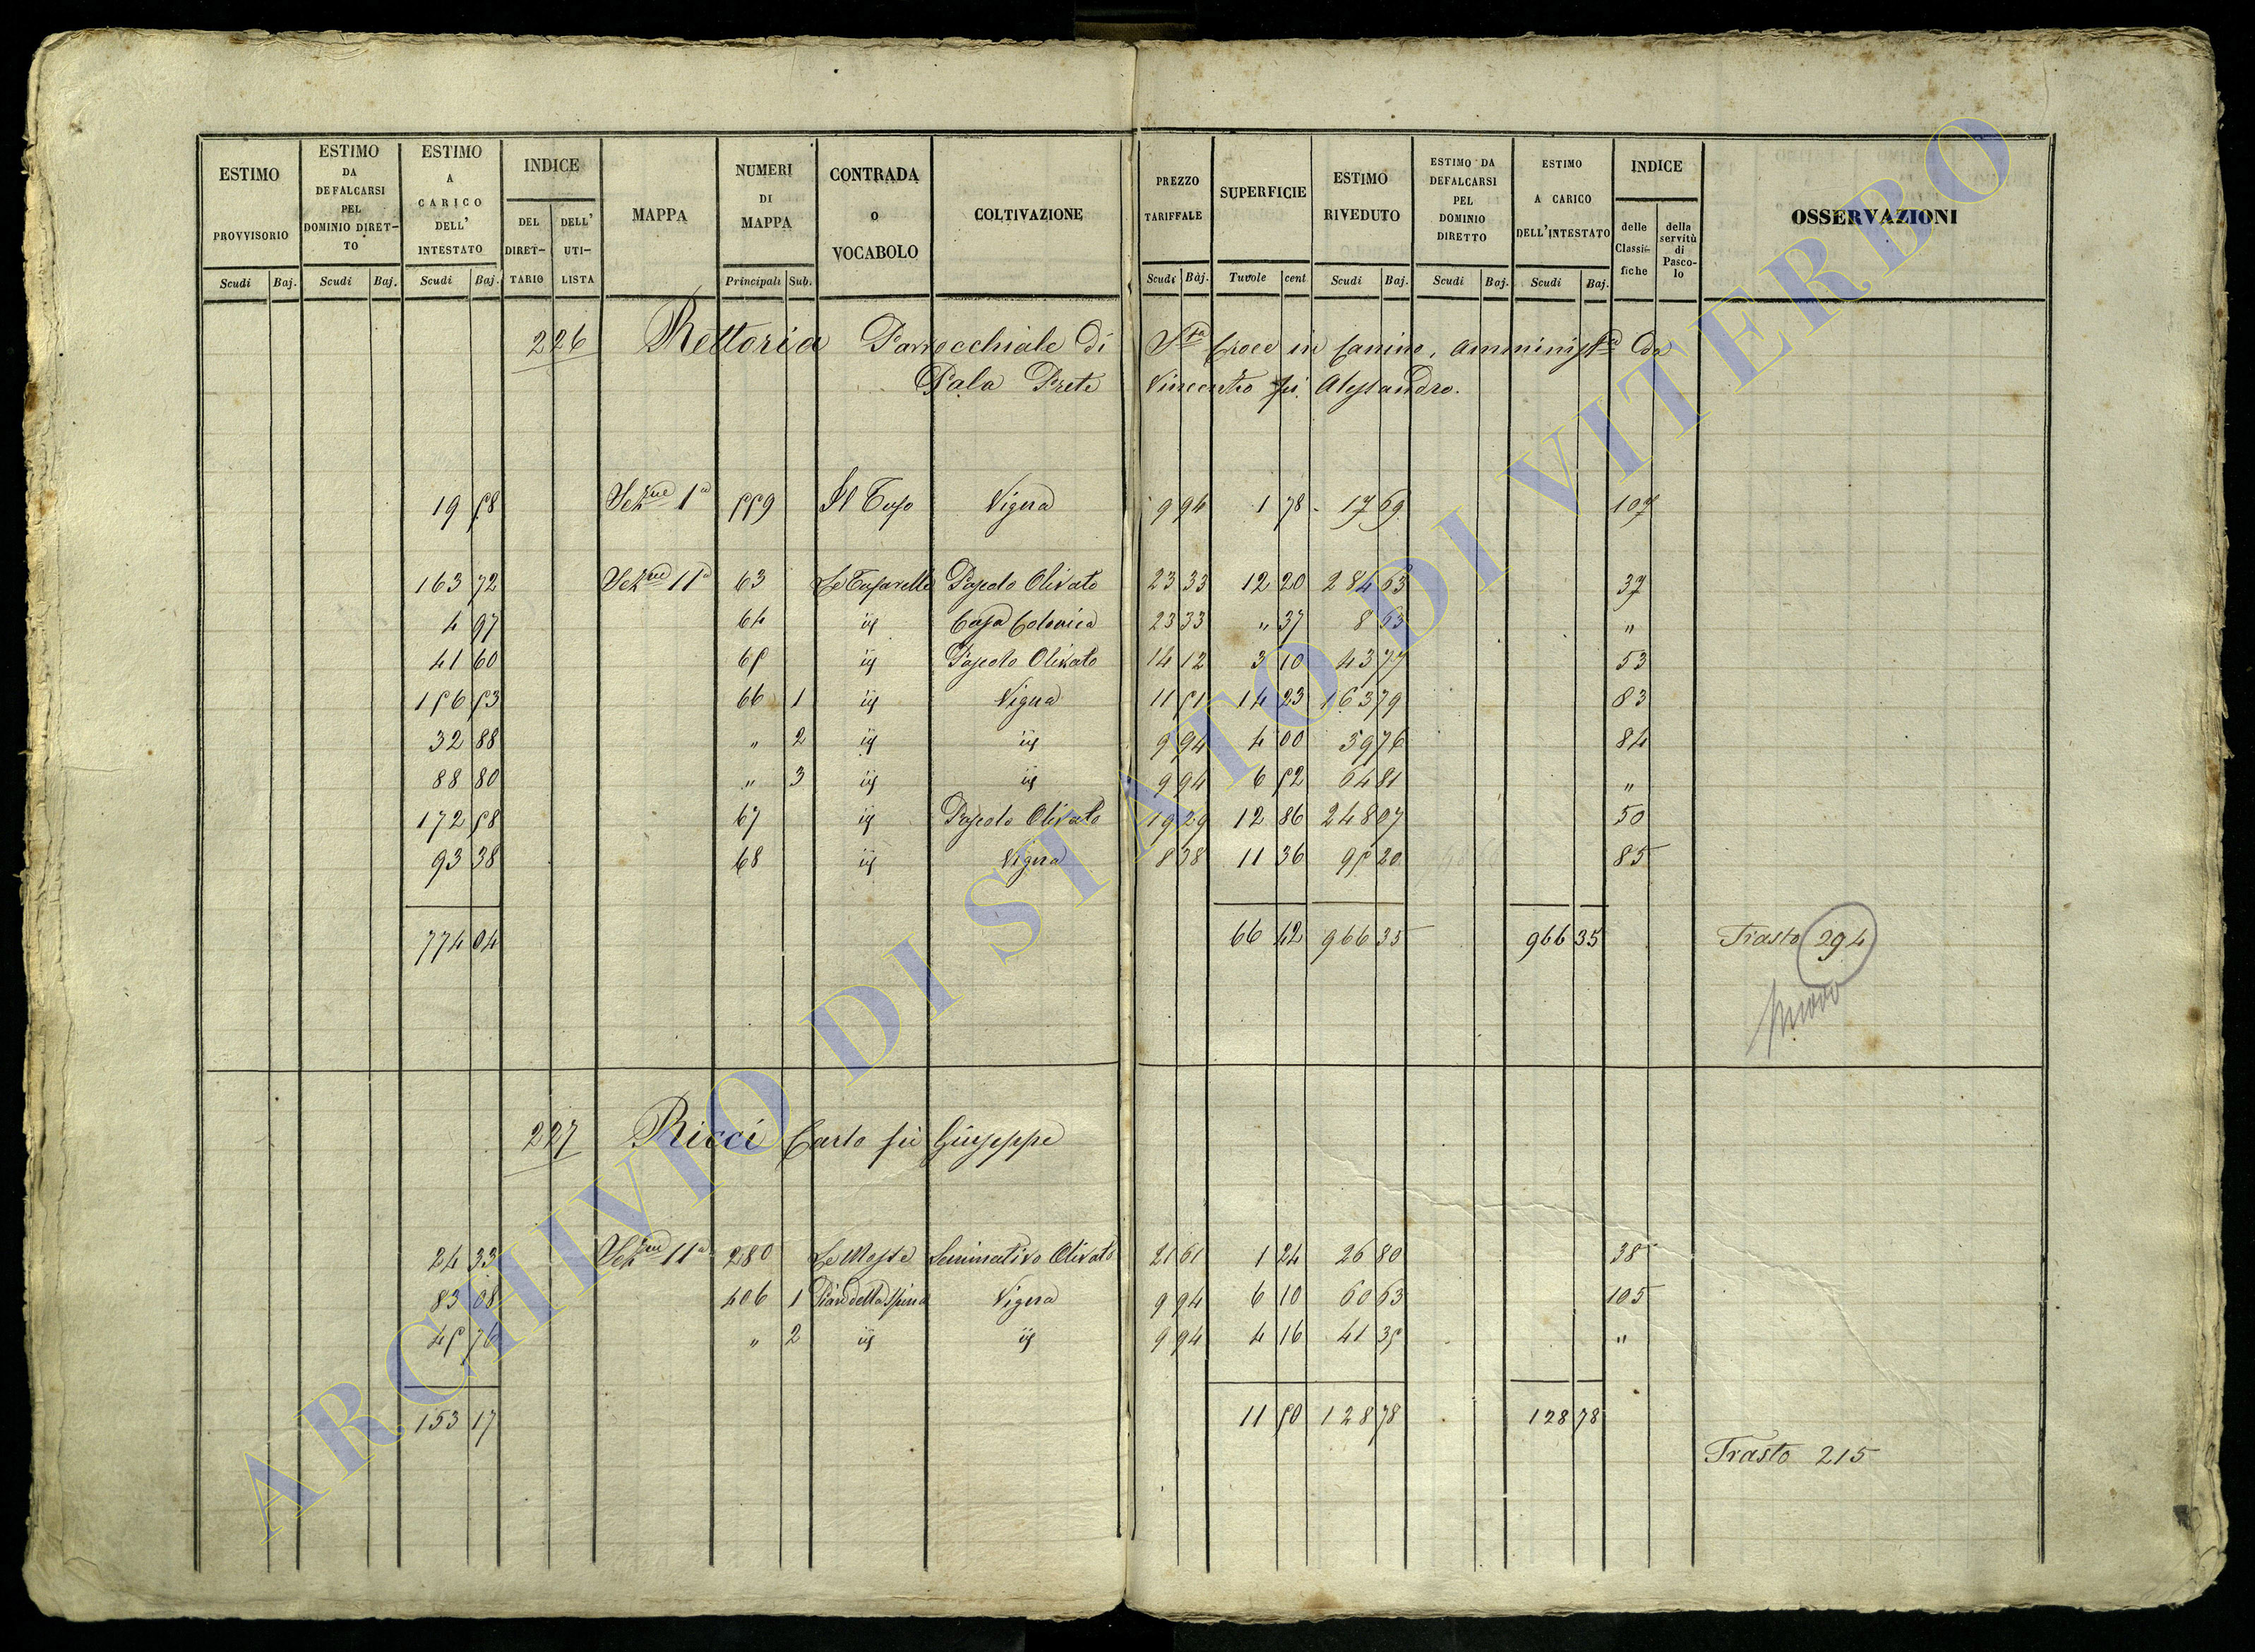 ESTIMO PROVVISORIO Scudi Baj.
ESTIMO DA DEFALCARSI PEL DOMINIO DIRET-TO Scudi Baj.
ESTIMO A CARICO DELL' INTESTATO Scudi Baj.
INDICE DEL DIRET-TARIO DELL' UTI-LISTA
MAPPA
NUMERI DI MAPPA Principali Sub.
CONTRADA o VOCABOLO
COLTIVAZIONE
PREZZO TARIFFALE Scudi Baj.
SUPERFICIE Tavole cent
ESTIMO RIVEDUTO Scudi Baj.
ESTIMO DA DEFALCARSI PEL DOMINIO DIRETTO Scudi Baj.
ESTIMO A CARICO DELL'INTESTATO Scudi Baj.
INDICE delle Classifiche della servitù di Pasco-lo
OSSERVAZIONI
226 Rettoria Parrocchiale di Sta Croce in Canino, amministta da
Pala Prete Vincenzo fu Alessandro.
19 58 Sezne 1a 559 Il Tufo Vigna 9 94 1 78 17 69 107
163 72 Sezne 11a 63 Le Tufarelle Pascolo Olivato 23 33 12 20 284 63 37
4 97 64 ijs Casa Colonica 23 33 " 37 8 63 "
41 60 65 ijs Pascolo Olivato 14 12 3 10 43 77 53
156 53 66 1 ijs Vigna 11 51 14 23 163 79 83
32 88 " 2 ijs ijs 9 94 4 00 39 76 84
88 80 " 3 ijs ijs 9 94 6 52 64 81 "
172 58 67 ijs Pascolo Olivato 19 29 12 86 248 07 50
93 38 68 ijs Vigna 8 38 11 36 95 20 85
774 04 66 42 966 35 966 35 Trasto 294
nuovo
227 Ricci Carlo fu Giuseppe
24 33 Sezne 11a 280 Le Mosse Seminativo Olivato 21 61 1 24 26 80 38
83 08 406 1 Pian della Spina Vigna 9 94 6 10 60 63 105
45 76 " 2 ijs ijs 9 94 4 16 41 35 "
153 17 11 50 128 78 128 78
Trasto 215
ARCHIVIO DI STATO DI VITERBO